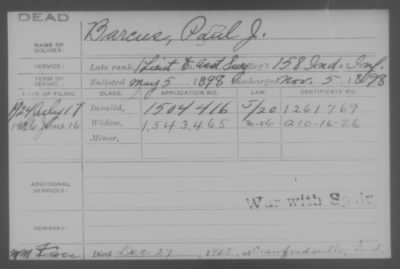 DEAD
NAME OF SOLDIER: Barcus, Paul J.
SERVICE: Late rank, 1 Lieut & Asst Surg, 158 Ind. Inf.
TERM OF SERVICE: Enlisted May 5, 1898 Discharged Nov. 5, 1898
DATE OF FILING. CLASS. APPLICATION NO. LAW. CERTIFICATE NO.
1924 July 17 Invalid, 1504416 5/20 1261769
1926 June 16 Widow, 1,543,465 A10-16-26
Minor,
ADDITIONAL SERVICES:
War with Spain
REMARKS:
Died Dec 27, 1925, at Crawfordsville, Ind.